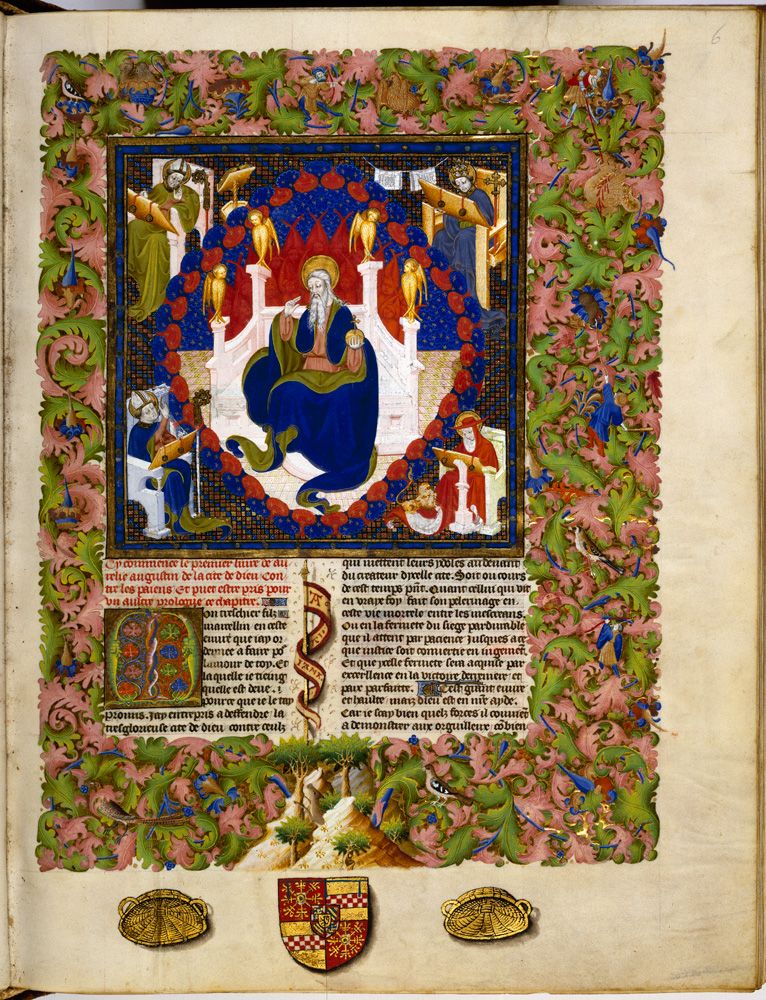 6
Cy commence le premier liure de au
relie augustin de la cite de dieu Con
tre les paiens Et puet estre pris pour
vn aultre prologue ce chapitre.
Mon treschier filz
marcellin en ceste
euure que iay or
donnee a faire
lamour de toy. Et
laquelle ie tieng
quelle est deue.
pource que ie le tay
promis. Jay entrepris a deffendre la
tresglorieuse cite de dieu contre ceulz
qui mettent leurs ydoles au deuant
du createur dycelle cite. Soit ou cours
de cest temps pnt. Quant cellui qui vit
en vraye foy fait son pelerinage en
ceste vie mortele entre les mescreans
Ou en la fermete du siege pardurable
que il attent par pacience Jusques a ce
que iustice soit conuertie en iugement
Et que ycelle fermete sera acquise par
excellence en la victoire derreniere et
paix parfaitte. Cest grant euure
et haulte maiz dieu est en nre ayde.
Car ie scay bien quelz forces il couuient
a demonstrer aux orgueilleux cõbien